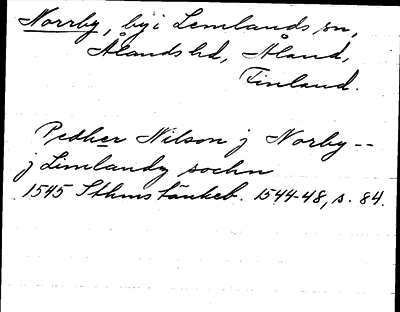 Norrby, by i Lemlands sn,
Ålands hd, Åland,
Finland.
Pedher Nilson j Norby --
j Limlandz sochn
1545 Sthms tänkeb. 1544-48, s. 84.